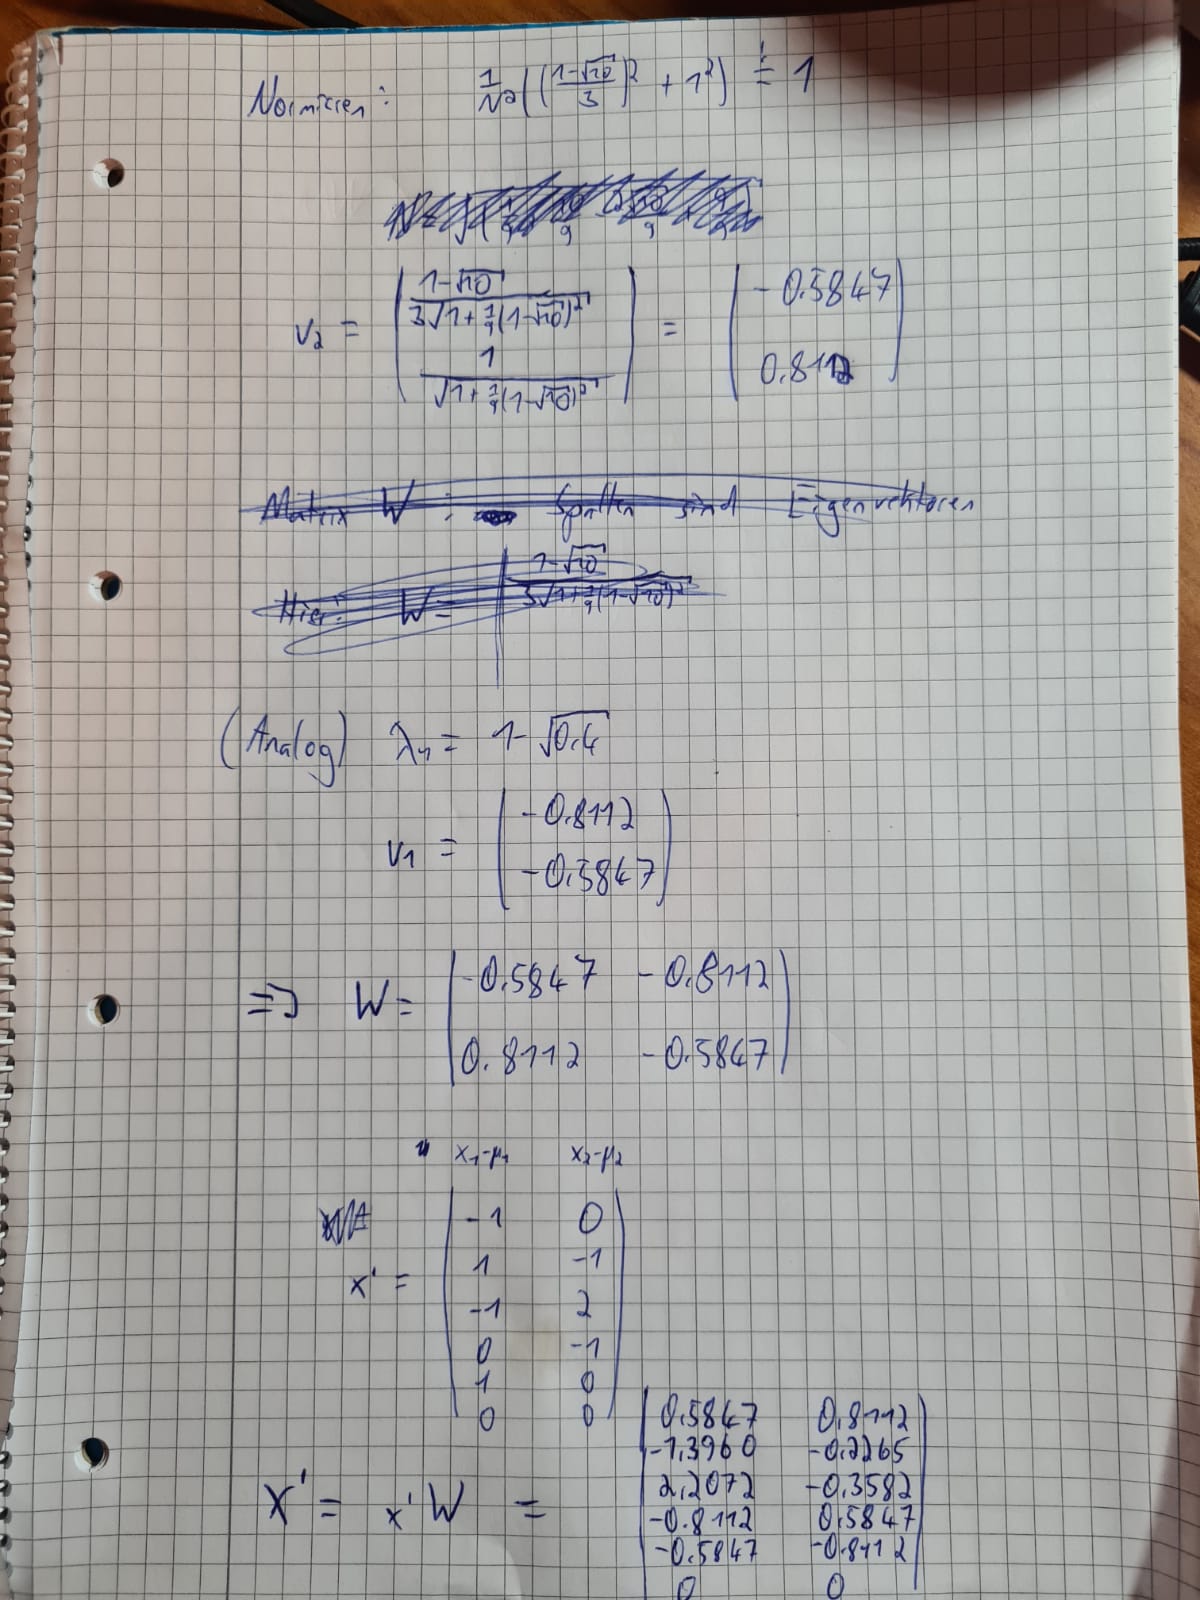 Normieren: 1/N² ( ( (1-√10)/3 )² + 1² ) != 1
v₂ = ( (1-√10)/(3√(1+1/9(1-√10)²)) ; 1/√(1+1/9(1-√10)²) ) = ( -0.5847 ; 0.8112 )
Matrix W : Spalten sind Eigenvektoren
Hier: W = | (1-√10)/(3√(1+1/9(1-√10)²))
(Analog) λ₁ = 1-√0.4
v₁ = ( -0.8112 ; -0.5847 )
=> W = ( -0.5847 -0.8112 ; 0.8112 -0.5847 )
x₁-μ₁ x₂-μ₂
x' = ( -1 0
1 -1
-1 2
0 -1
1 0
0 0 )
X' = x' W = ( 0.5847 0.8112
-1.3960 -0.2265
2.2072 -0.3582
-0.8112 0.5847
-0.5847 -0.8112
0 0 )